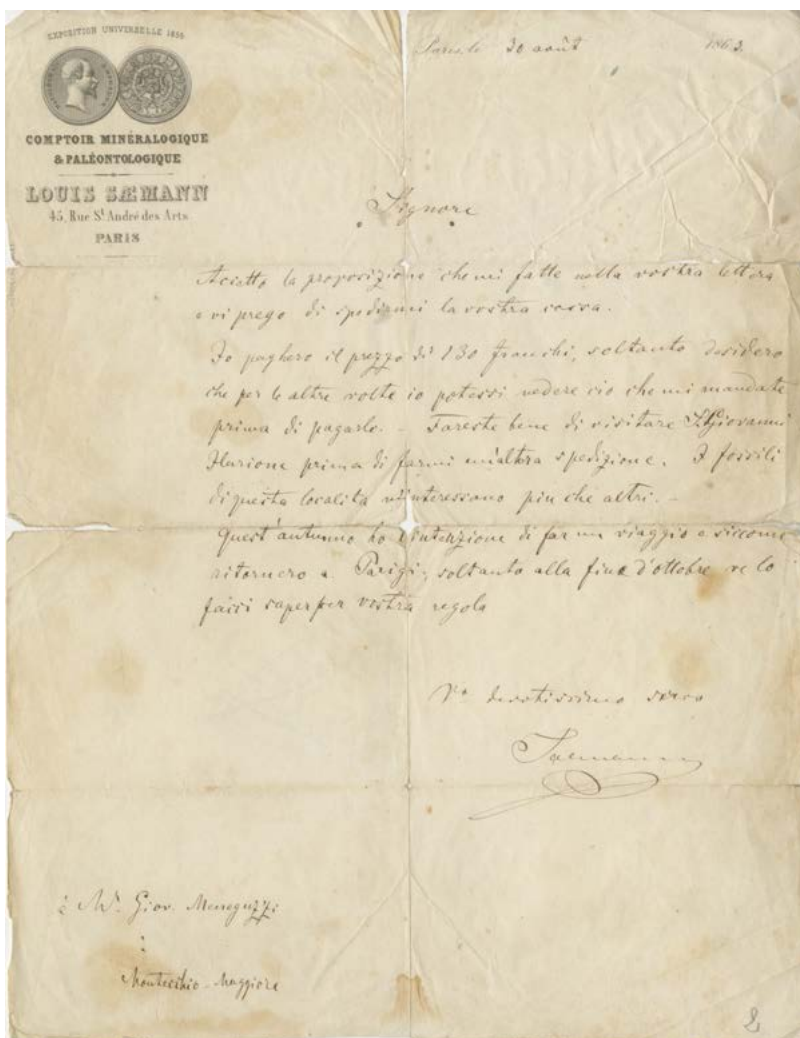 EXPOSITION UNIVERSELLE 1855
COMPTOIR MINÉRALOGIQUE
& PALÉONTOLOGIQUE
LOUIS SÆMANN
45, Rue St André des Arts
PARIS
Paris, le 30 août 1863.
Signore
Accetto la proposizione che mi fatte nella vostra lettera
e vi prego di spedirmi la vostra cassa.
Io paghero il prezzo di 130 franchi, soltanto desidero
che per le altre volte io potessi vedere cio che mi mandate
prima di pagarlo. – Fareste bene di visitare S. Giovanni
Ilarione prima di farmi un'altra spedizione. I fossili
di questa localita m'interessano piu che altri. –
Quest'autunno ho l'intenzione di far un viaggio e siccome
ritornero a Parigi, soltanto alla fine d'ottobre ve lo
facci saper per vostra regola
Vo devotissimo servo
Saemann
à Mr. Giov. Meneguzzi
à
Montecchio-Maggiore
2